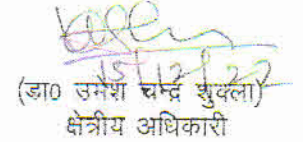 15/12/22
(डा0 उमेश चन्द्र शुक्ला)
क्षेत्रीय अधिकारी